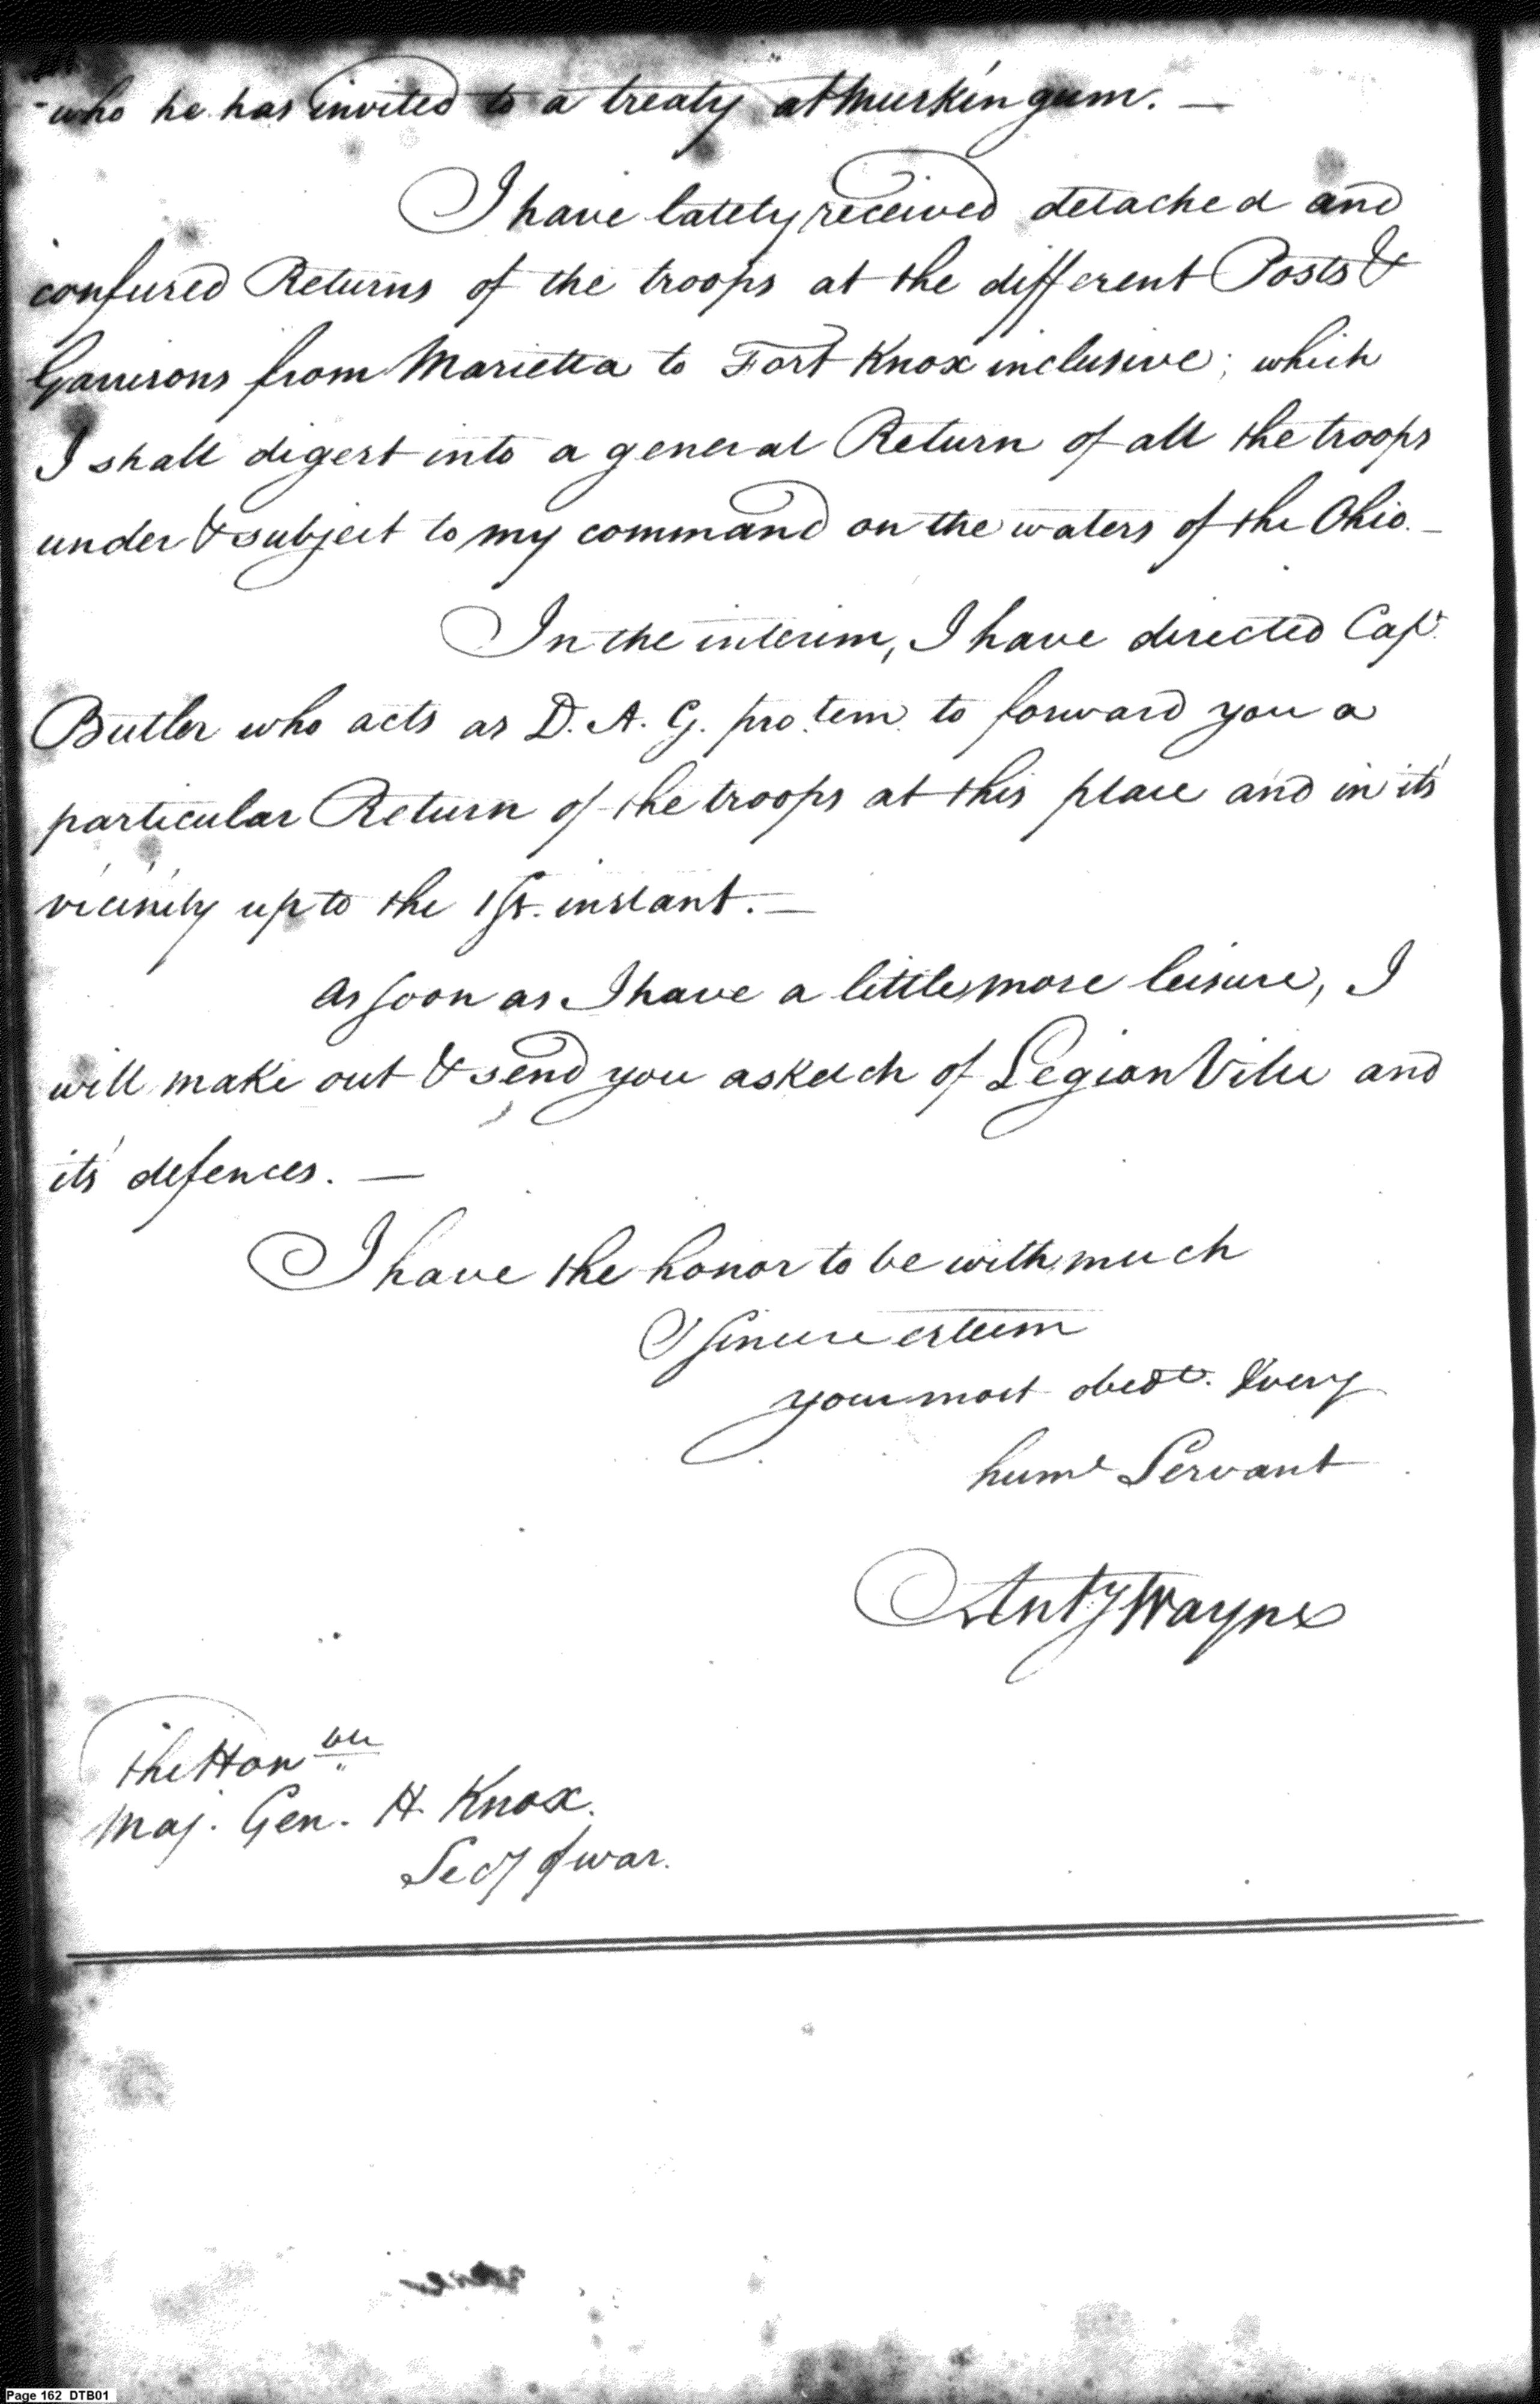 who he has invited to a treaty at Muskingum. —
I have lately received detached and
confused Returns of the troops at the different Posts &
Garrisons from Marietta to Fort Knox inclusive; which
I shall digest into a general Return of all the troops
under & subject to my command on the waters of the Ohio. —
In the interim, I have directed Capt.
Butler who acts as D. A. G. pro. tem. to forward you a
particular Return of the troops at this place and in its
vicinity up to the 1st. instant. —
As soon as I have a little more leisure, I
will make out & send you a sketch of Legion Ville and
its defences. —
I have the honor to be with much
& sincere esteem
your most obedt. & very
huml Servant
Anty Wayne
The Honble
Maj. Gen. H. Knox.
Secy of war.
Page 162 DTB01